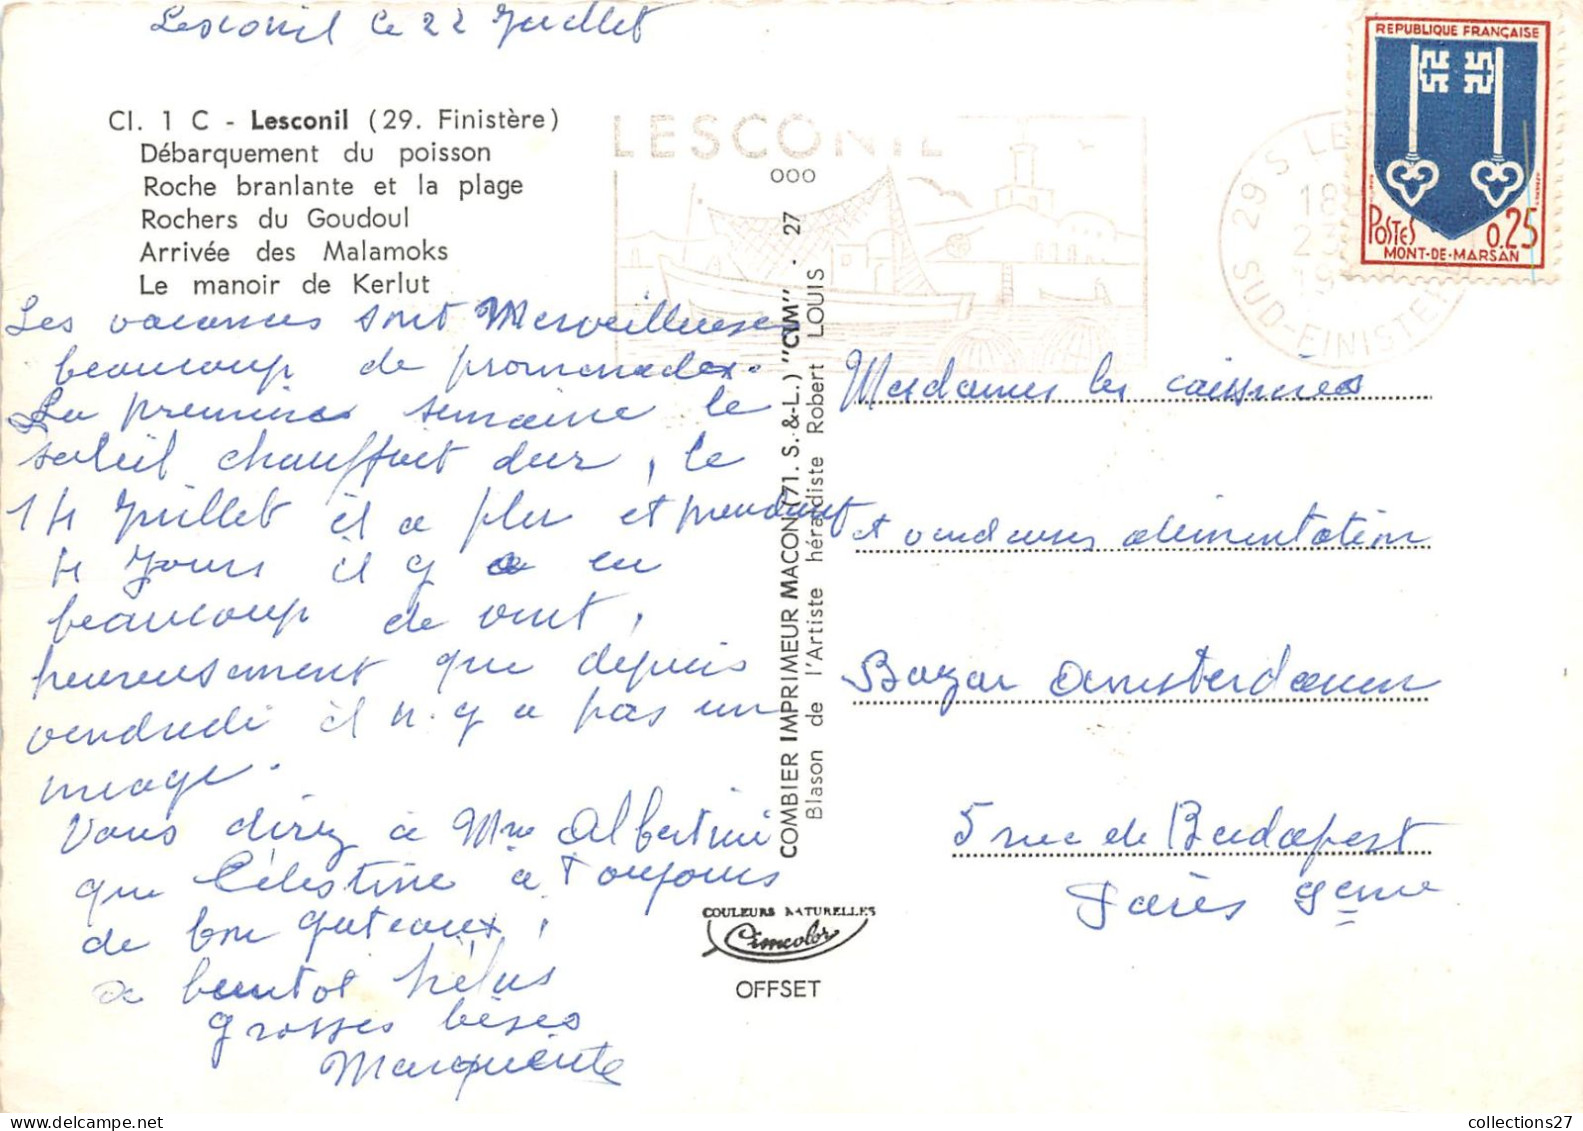 Lesconil le 22 Juillet
Cl. 1 C - Lesconil (29. Finistère)
Débarquement du poisson
Roche branlante et la plage
Rochers du Goudoul
Arrivée des Malamoks
Le manoir de Kerlut
Les vacances sont Merveilleuses
beaucoup de promenades.
La première semaine le
soleil chauffait dur, le
14 Juillet il a plu et pendant
4 Jours il y a eu
beaucoup de vent,
heureusement que depuis
vendredi il n.y a pas un
nuage.
Vous direz à Mme Albertini
que Célestine a Toujours
de bon gateaux,
a bientot hélas
grosses bises
Marquerite
COMBIER IMPRIMEUR MACON (71. S.-&-L.) "CIM" - 27
Blason de l'Artiste héraldiste Robert LOUIS
COULEURS NATURELLES
Cimcolor
OFFSET
LESCONIL
29 S LE
18
2
19
SUD-FINISTE
REPUBLIQUE FRANÇAISE
POSTES 0.25
MONT-DE-MARSAN
Mesdames les caissières
et vendeuses alimentation
Bazar Amsterdam
5 rue de Budapest
Paris 9eme
collections27